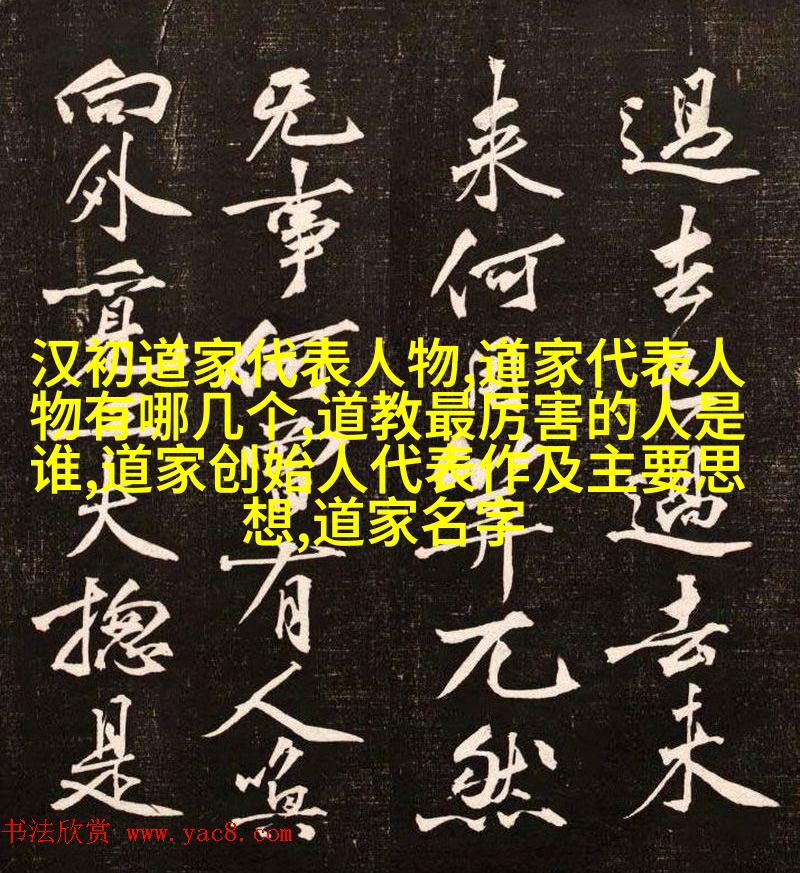 汉初道家代表人物,道家代表人
物有哪几个,道教最厉害的人是
谁,道家创始人代表作及主要思
想,道家名字
過去過去未
来何筭兀然
无事何曾有人喚
向外覓工夫摠是
书法欣赏 www.yac8.com